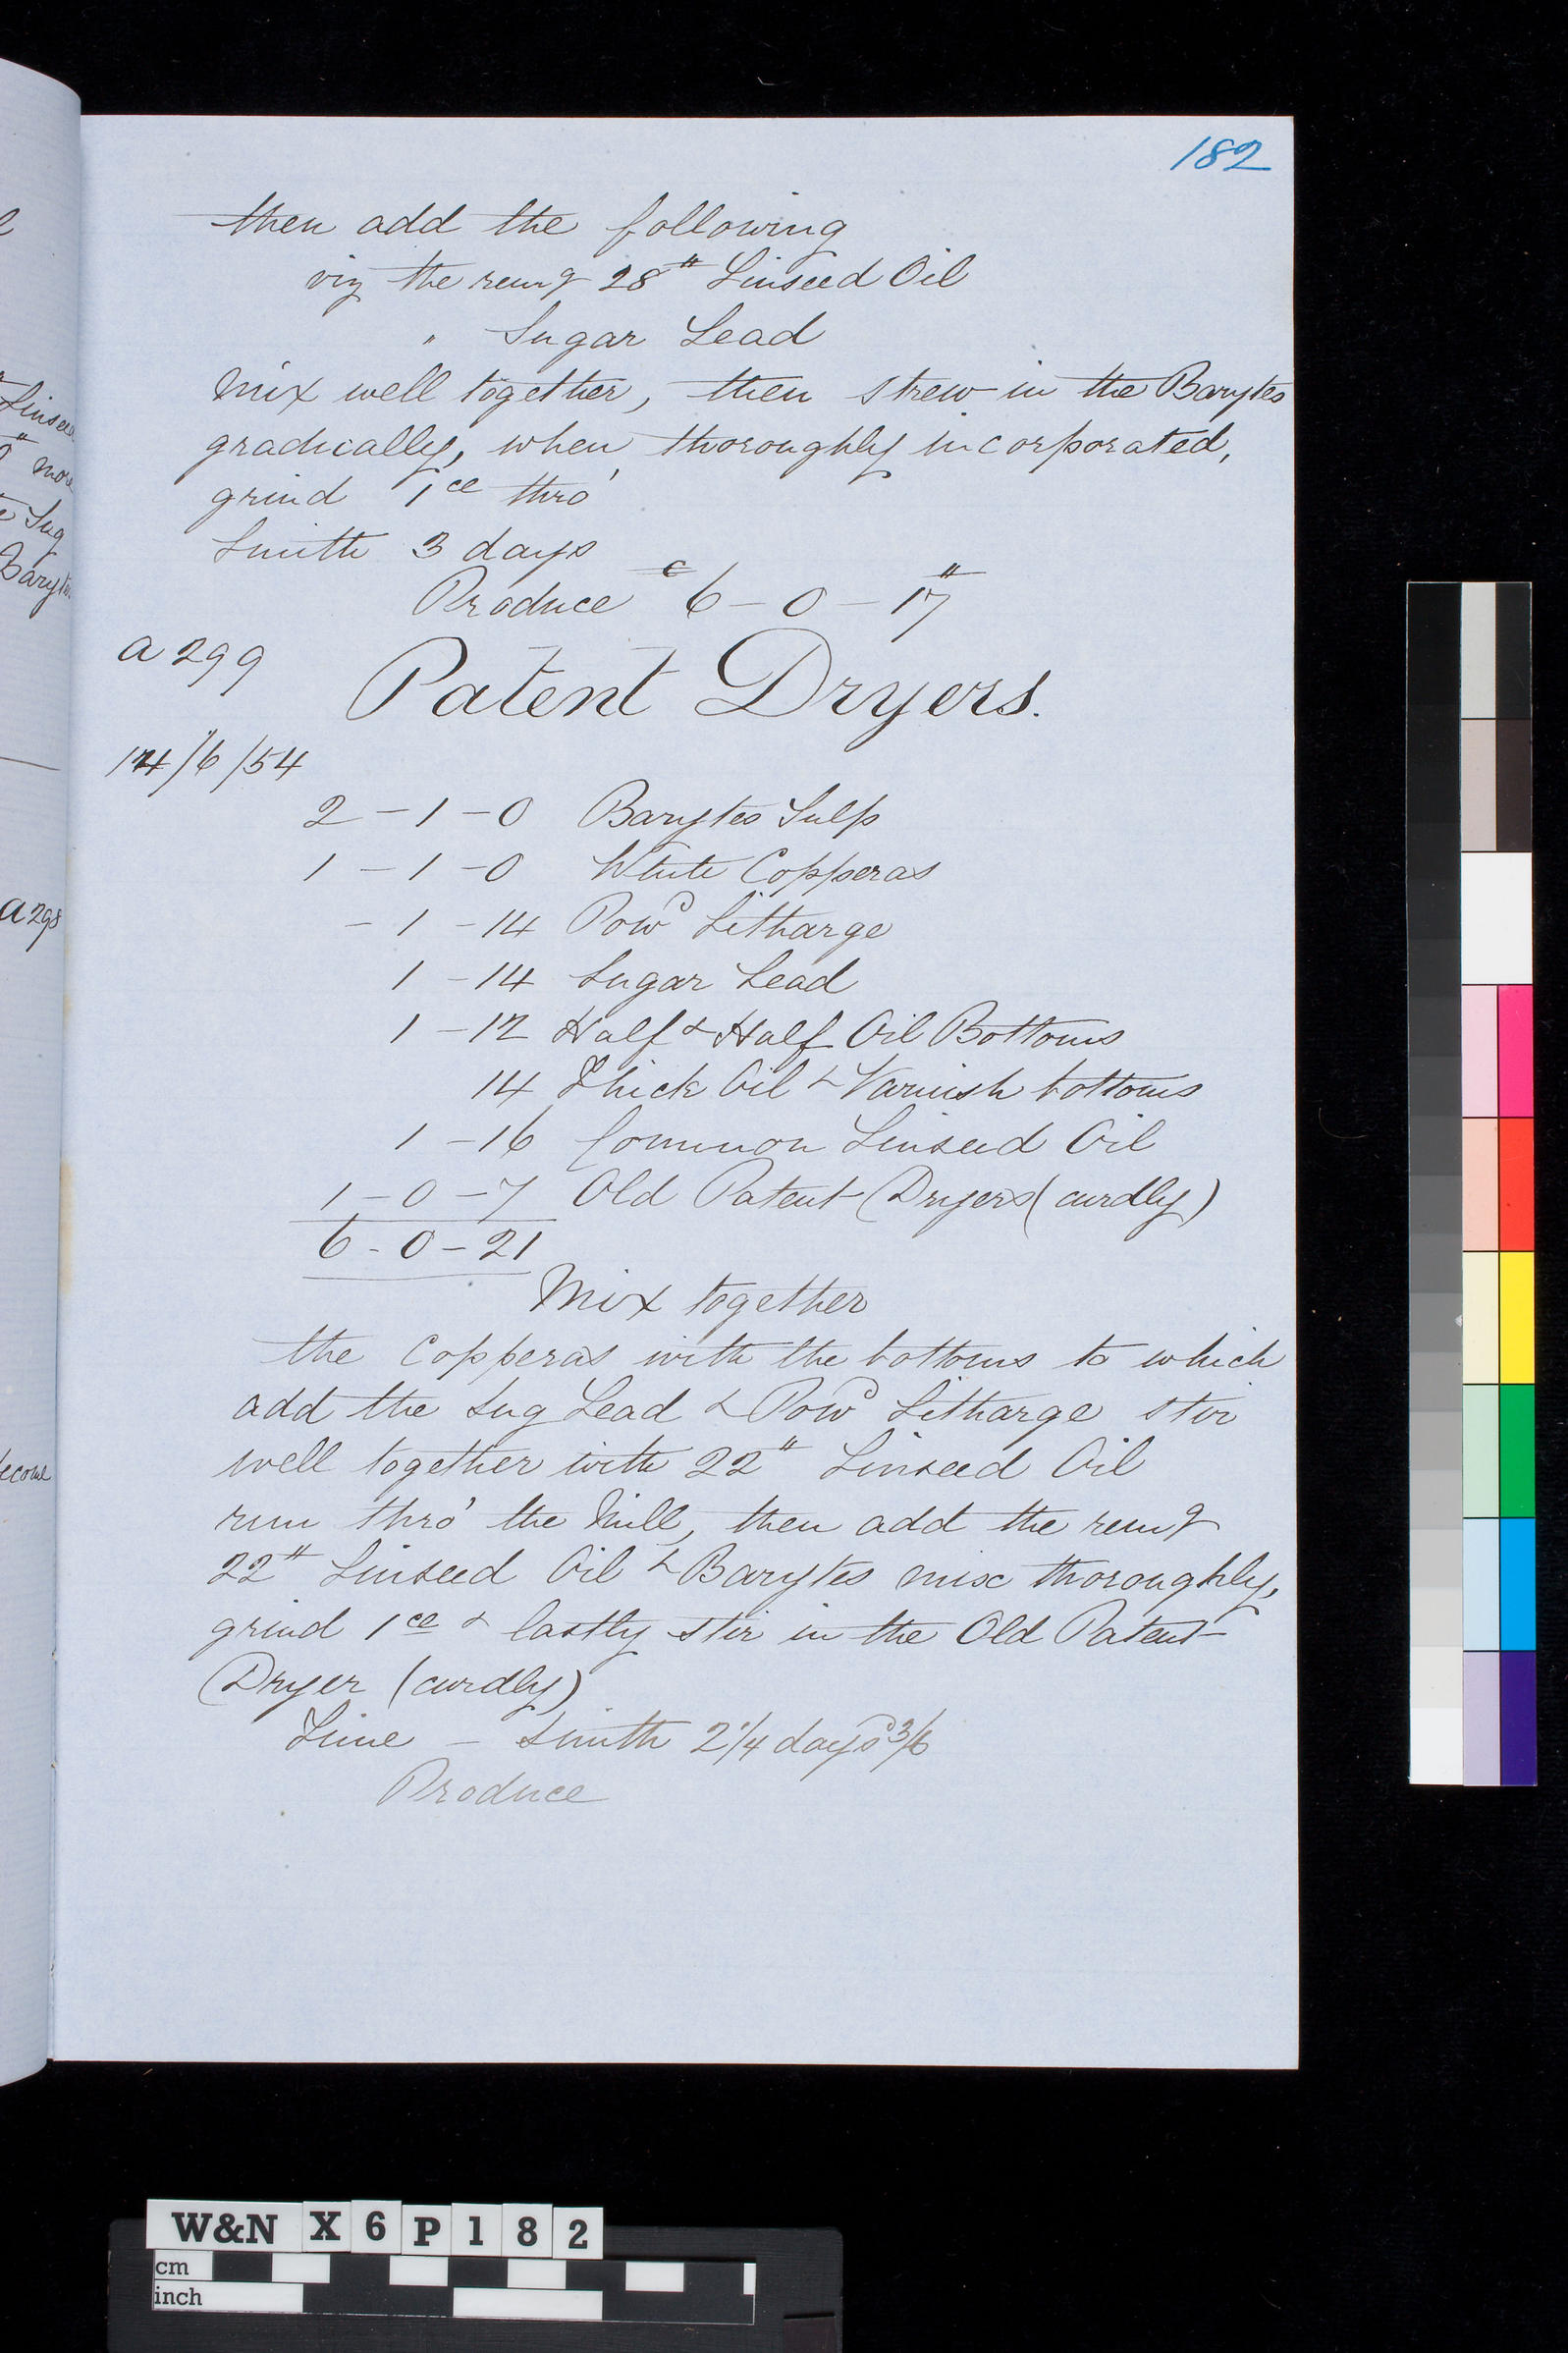 182
then add the following
viz the remg 28# Linseed Oil
" Sugar Lead
Mix well together, then strew in the Barytes
gradually, when thoroughly incorporated,
grind 1ce thro'
Smith 3 days
Produce c6 - 0 - 17#
a 299
Patent Dryers.
14/6/54
2 - 1 - 0 Barytes Sulp
1 - 1 - 0 White Copperas
- 1 - 14 Powd Litharge
1 - 14 Sugar Lead
1 - 12 Half & Half Oil Bottoms
14 Thick Oil & Varnish bottoms
1 - 16 Common Linseed Oil
1 - 0 - 7 Old Patent Dryers (curdly)
6 - 0 - 21
Mix together
the Copperas with the bottoms to which
add the Sug Lead & Powd Litharge stir
well together with 22# Linseed Oil
run thro' the Mill, then add the remg
22# Linseed Oil & Barytes mix thoroughly,
grind 1ce & lastly stir in the Old Patent
Dryer (curdly)
Time - Smith 2 1/4 days 3/6
Produce
Linseed
more
Sug
Baryte
a 298
W&N X6P182
cm
inch